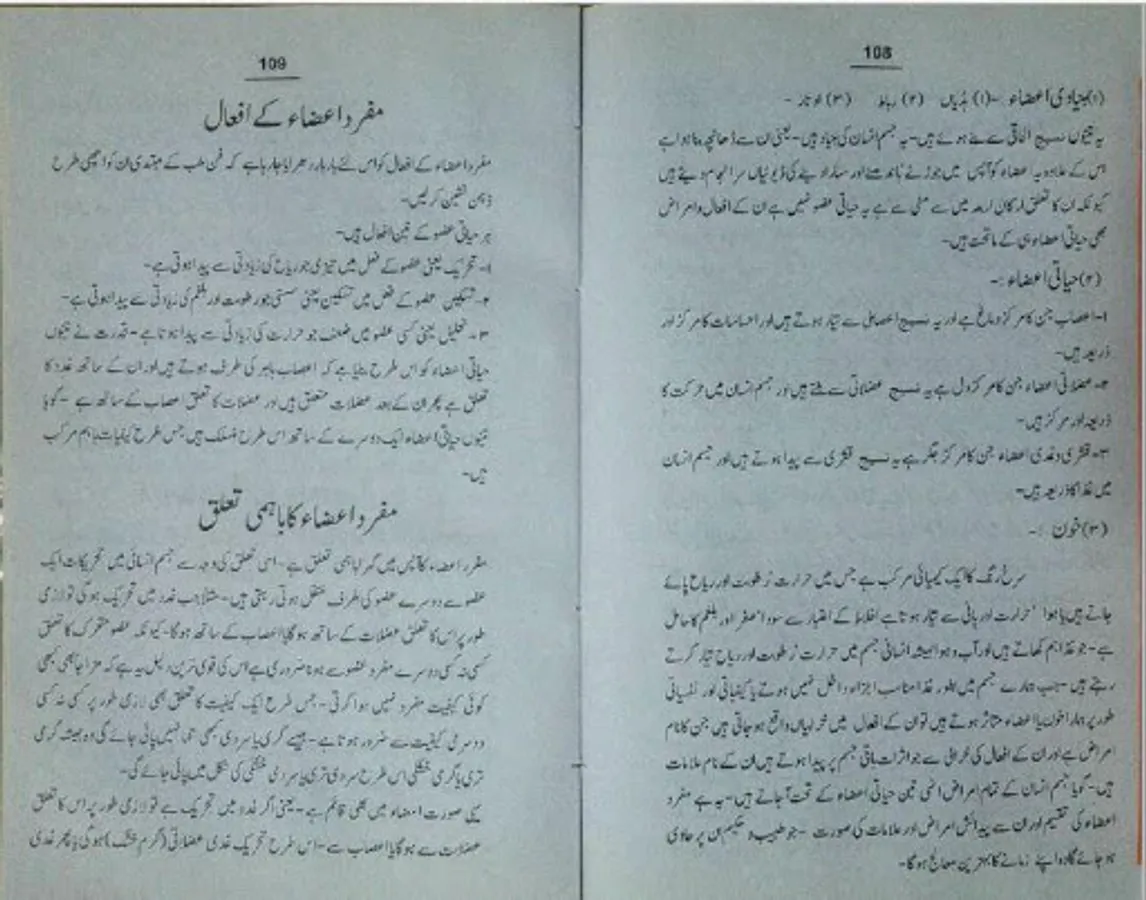 108
(۱) بنیادی اعضاء :- (۱) ہڈیاں (۲) رباط (۳) اوتار -
یہ تینوں نسیج الحاقی سے بنے ہوئے ہیں- یہ جسم انسان کی بنیاد ہیں- یعنی ان سے ڈھانچہ بنا ہوا ہے
اس کے علاوہ یہ اعضاء کو آپس میں جوڑنے باندھنے اور سہارا دینے کی ڈیوٹیاں سر انجام دیتے ہیں
کیونکہ ان کا تعلق ارکان اربعہ میں سے مٹی سے ہے یہ حیاتی عضو نہیں ہے ان کے افعال و امراض
بھی حیاتی اعضاء ہی کے ماتحت ہیں-
(۲) حیاتی اعضاء :-
۱- اعصاب جن کا مرکز دماغ ہے اور یہ نسیج اعصابی سے تیار ہوتے ہیں اور احساسات کا مرکز اور
ذریعہ ہیں-
۲- عضلاتی اعضاء جن کا مرکز دل ہے یہ نسیج عضلاتی سے بنتے ہیں اور جسم انسان میں حرکت کا
ذریعہ اور مرکز ہیں-
۳- قشری و غدی اعضاء جن کا مرکز جگر ہے یہ نسیج قشری سے پیدا ہوتے ہیں اور جسم انسان
میں غذا کا ذریعہ ہیں-
(۳) خون :-
سرخ رنگ کا ایک کیمیائی مرکب ہے جس میں حرارت' رطوبت اور ریاح پائے
جاتے ہیں یا ہوا' حرارت اور پانی سے تیار ہوتا ہے اخلاط کے اعتبار سے سودا' صفرا اور بلغم کا حامل
ہے- جو غذا ہم کھاتے ہیں اور آب و ہوا ہمیشہ انسانی جسم میں حرارت' رطوبت اور ریاح تیار کرتے
رہتے ہیں- جب ہمارے جسم میں بطور غذا مناسب اجزاء داخل نہیں ہوتے یا کیفیاتی اور نفسیاتی
طور پر ہمارا خون یا اعضاء متاثر ہوتے ہیں تو ان کے افعال میں خرابیاں واقع ہو جاتی ہیں جن کا نام
امراض ہے اور ان کے افعال کی خرابی سے جو اثرات باقی جسم پر پیدا ہوتے ہیں ان کے نام علامات
ہیں- گویا جسم انسان کے تمام امراض انہی تین حیاتی اعضاء کے تحت آ جاتے ہیں- یہ ہے مفرد
اعضاء کی تقسیم اور ان سے پیدائش امراض اور علامات کی صورت - جو طبیب و حکیم ان پر حاوی
ہو جائے گا وہ اپنے زمانے کا بہترین معالج ہو گا-
109
مفرد اعضاء کے افعال
مفرد اعضاء کے افعال کو اس لئے بار بار دھرایا جا رہا ہے کہ فن طب کے مبتدی ان کو اچھی طرح
ذہن نشین کر لیں-
ہر حیاتی عضو کے تین افعال ہیں-
۱- تحریک یعنی عضو کے فعل میں تیزی جو ریاح کی زیادتی سے پیدا ہوتی ہے-
۲- تسکین عضو کے فعل میں تسکین یعنی سستی جو رطوبت اور بلغم کی زیادتی سے پیدا ہوتی ہے-
۳- تحلیل یعنی کسی عضو میں ضعف جو حرارت کی زیادتی سے پیدا ہوتا ہے- قدرت نے تینوں
حیاتی اعضاء کو اس طرح بنایا ہے کہ اعصاب باہر کی طرف ہوتے ہیں اور ان کے ساتھ غدد کا
تعلق ہے پھر ان کے بعد عضلات متعلق ہیں اور عضلات کا تعلق اعصاب کے ساتھ ہے - گویا
تینوں حیاتی اعضاء ایک دوسرے کے ساتھ اس طرح منسلک ہیں جس طرح کیفیات باہم مرکب
ہیں-
مفرد اعضاء کا باہمی تعلق
مفرد اعضاء کا آپس میں گہرا باہمی تعلق ہے- اسی تعلق کی وجہ سے جسم انسانی میں تحریکات ایک
عضو سے دوسرے عضو کی طرف منتقل ہوتی رہتی ہیں- مثلاً جب غدد میں تحریک ہو گی تو لازمی
طور پر اس کا تعلق عضلات کے ساتھ ہو گا یا اعصاب کے ساتھ ہو گا- کیونکہ عضو متحرک کا تعلق
کسی نہ کسی دوسرے مفرد عضو سے ہونا ضروری ہے اس کی قوی ترین دلیل یہ ہے کہ مزاجا بھی کبھی
کوئی کیفیت مفرد نہیں ہوا کرتی - جس طرح ایک کیفیت کا تعلق بھی لازمی طور پر کسی نہ کسی
دوسری کیفیت سے ضرور ہوتا ہے- جیسے گرمی یا سردی کبھی تنہا نہیں پائی جائے گی وہ ہمیشہ گرمی
تری یا گرمی خشکی اس طرح سردی تری یا سردی خشکی کی شکل میں پائی جائے گی-
یہی صورت اعضاء میں بھی قائم ہے- یعنی اگر غدد میں تحریک ہے تو لازمی طور پر اس کا تعلق
عضلات سے ہو گا یا اعصاب سے- اس طرح تحریک غدی عضلاتی (گرم خشک) ہو گی یا پھر غدی